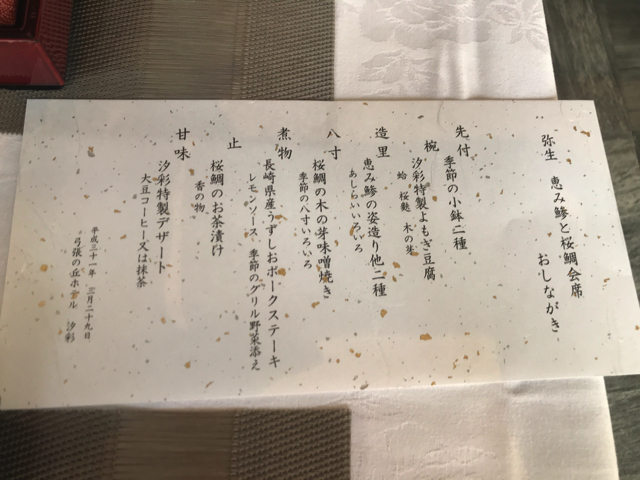 弥生 恵み鯵と桜鯛会席
おしながき
先付
季節の小鉢二種
椀
汐彩特製よもぎ豆腐
蛤 桜麩 木の芽
造里
恵み鯵の姿造り他二種
あしらいいろいろ
八寸
桜鯛の木の芽味噌焼き
季節の八寸いろいろ
煮物
長崎県産うずしおポークステーキ
レモンソース 季節のグリル野菜添え
止
桜鯛のお茶漬け
香の物
甘味
汐彩特製デザート
大豆コーヒー又は抹茶
平成三十一年 三月二十九日
弓張の丘ホテル 汐彩